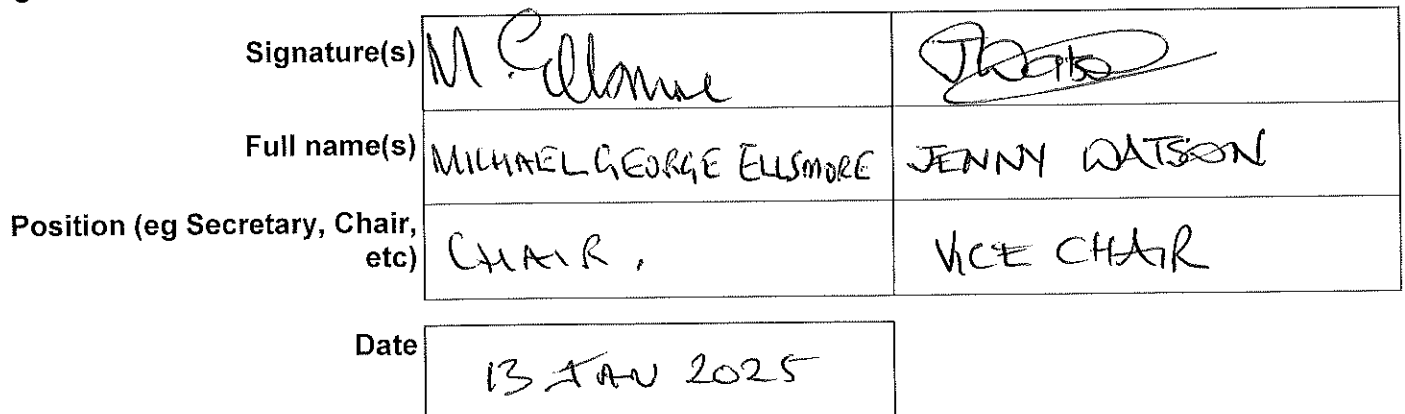 Signature(s) M. Ellsmore JWatson
Full name(s) MICHAEL GEORGE ELLSMORE JENNY WATSON
Position (eg Secretary, Chair,
etc) CHAIR. VICE CHAIR
Date 13 JAN 2025